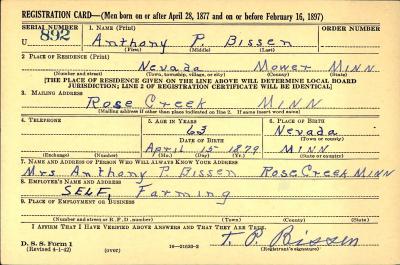 REGISTRATION CARD—(Men born on or after April 28, 1877 and on or before February 16, 1897)
SERIAL NUMBER 1. NAME (Print) ORDER NUMBER
U 892 Anthony P. Bissen
(First) (Middle) (Last)
2. PLACE OF RESIDENCE (Print)
Nevada Mower MINN
(Number and street) (Town, township, village, or city) (County) (State)
[THE PLACE OF RESIDENCE GIVEN ON THE LINE ABOVE WILL DETERMINE LOCAL BOARD
JURISDICTION; LINE 2 OF REGISTRATION CERTIFICATE WILL BE IDENTICAL]
3. MAILING ADDRESS
Rose Creek MINN
(Mailing address if other than place indicated on line 2. If same insert word same)
4. TELEPHONE 5. AGE IN YEARS 6. PLACE OF BIRTH
63 Nevada
DATE OF BIRTH (Town or county)
April 15 1879 MINN
(Exchange) (Number) (Mo.) (Day) (Yr.) (State or country)
7. NAME AND ADDRESS OF PERSON WHO WILL ALWAYS KNOW YOUR ADDRESS
Mrs Anthony P Bissen Rose Creek MINN
8. EMPLOYER'S NAME AND ADDRESS
SELF, Farming
9. PLACE OF EMPLOYMENT OR BUSINESS
(Number and street or R. F. D. number) (Town) (County) (State)
I AFFIRM THAT I HAVE VERIFIED ABOVE ANSWERS AND THAT THEY ARE TRUE.
D. S. S. Form 1
(Revised 4-1-42) (over) P. Bissen
(Registrant's signature)